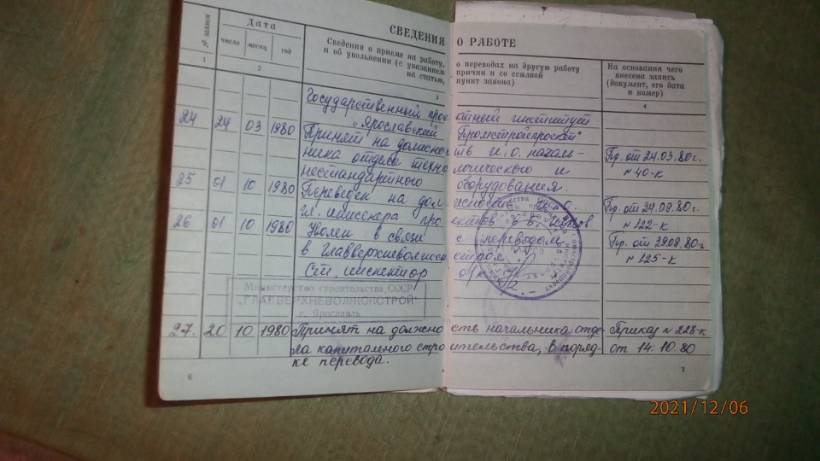 СВЕДЕНИЯ О РАБОТЕ
№ записи
Дата
число месяц год
Сведения о приеме на работу, о переводах на другую работу
и об увольнении (с указанием причин и со ссылкой
на статью, пункт закона)
На основании чего
внесена запись
(документ, его дата
и номер)
1 2 3 4
Государственный проектный институт
"Ярославский Промстройпроект"
24 24 03 1980 Принят на должность и.о. началь- Пр. от 24.03.80г.
ника отдела технологического и № 40-к
нестандартного оборудования.
25 01 10 1980 Переведен на должность Пр. от 24.09.80г.
гл. инженера проектов № 122-к
26 01 10 1980 Уволен в связи с переводом Пр. от
в Главверхневолжскстрой. № 125-к
Ст. инспектор
Министерство строительства СССР
"ГЛАВВЕРХНЕВОЛЖСКСТРОЙ"
г. Ярославль
27. 20 10 1980 Принят на должность начальника отде- Приказ №
ла капитального строительства, в поряд- от 14.10.80
ке перевода.
6 7
2021/12/06